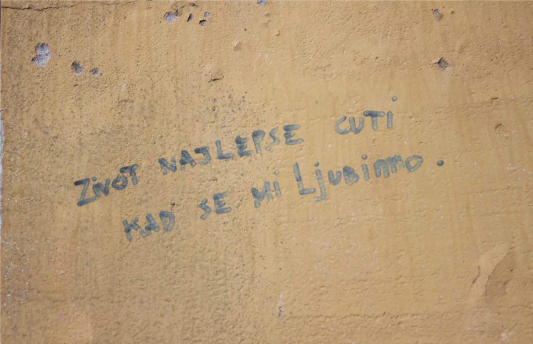 ZiVOT NAJLEPSE CUTi
KAD SE Mi LjUBiMO.